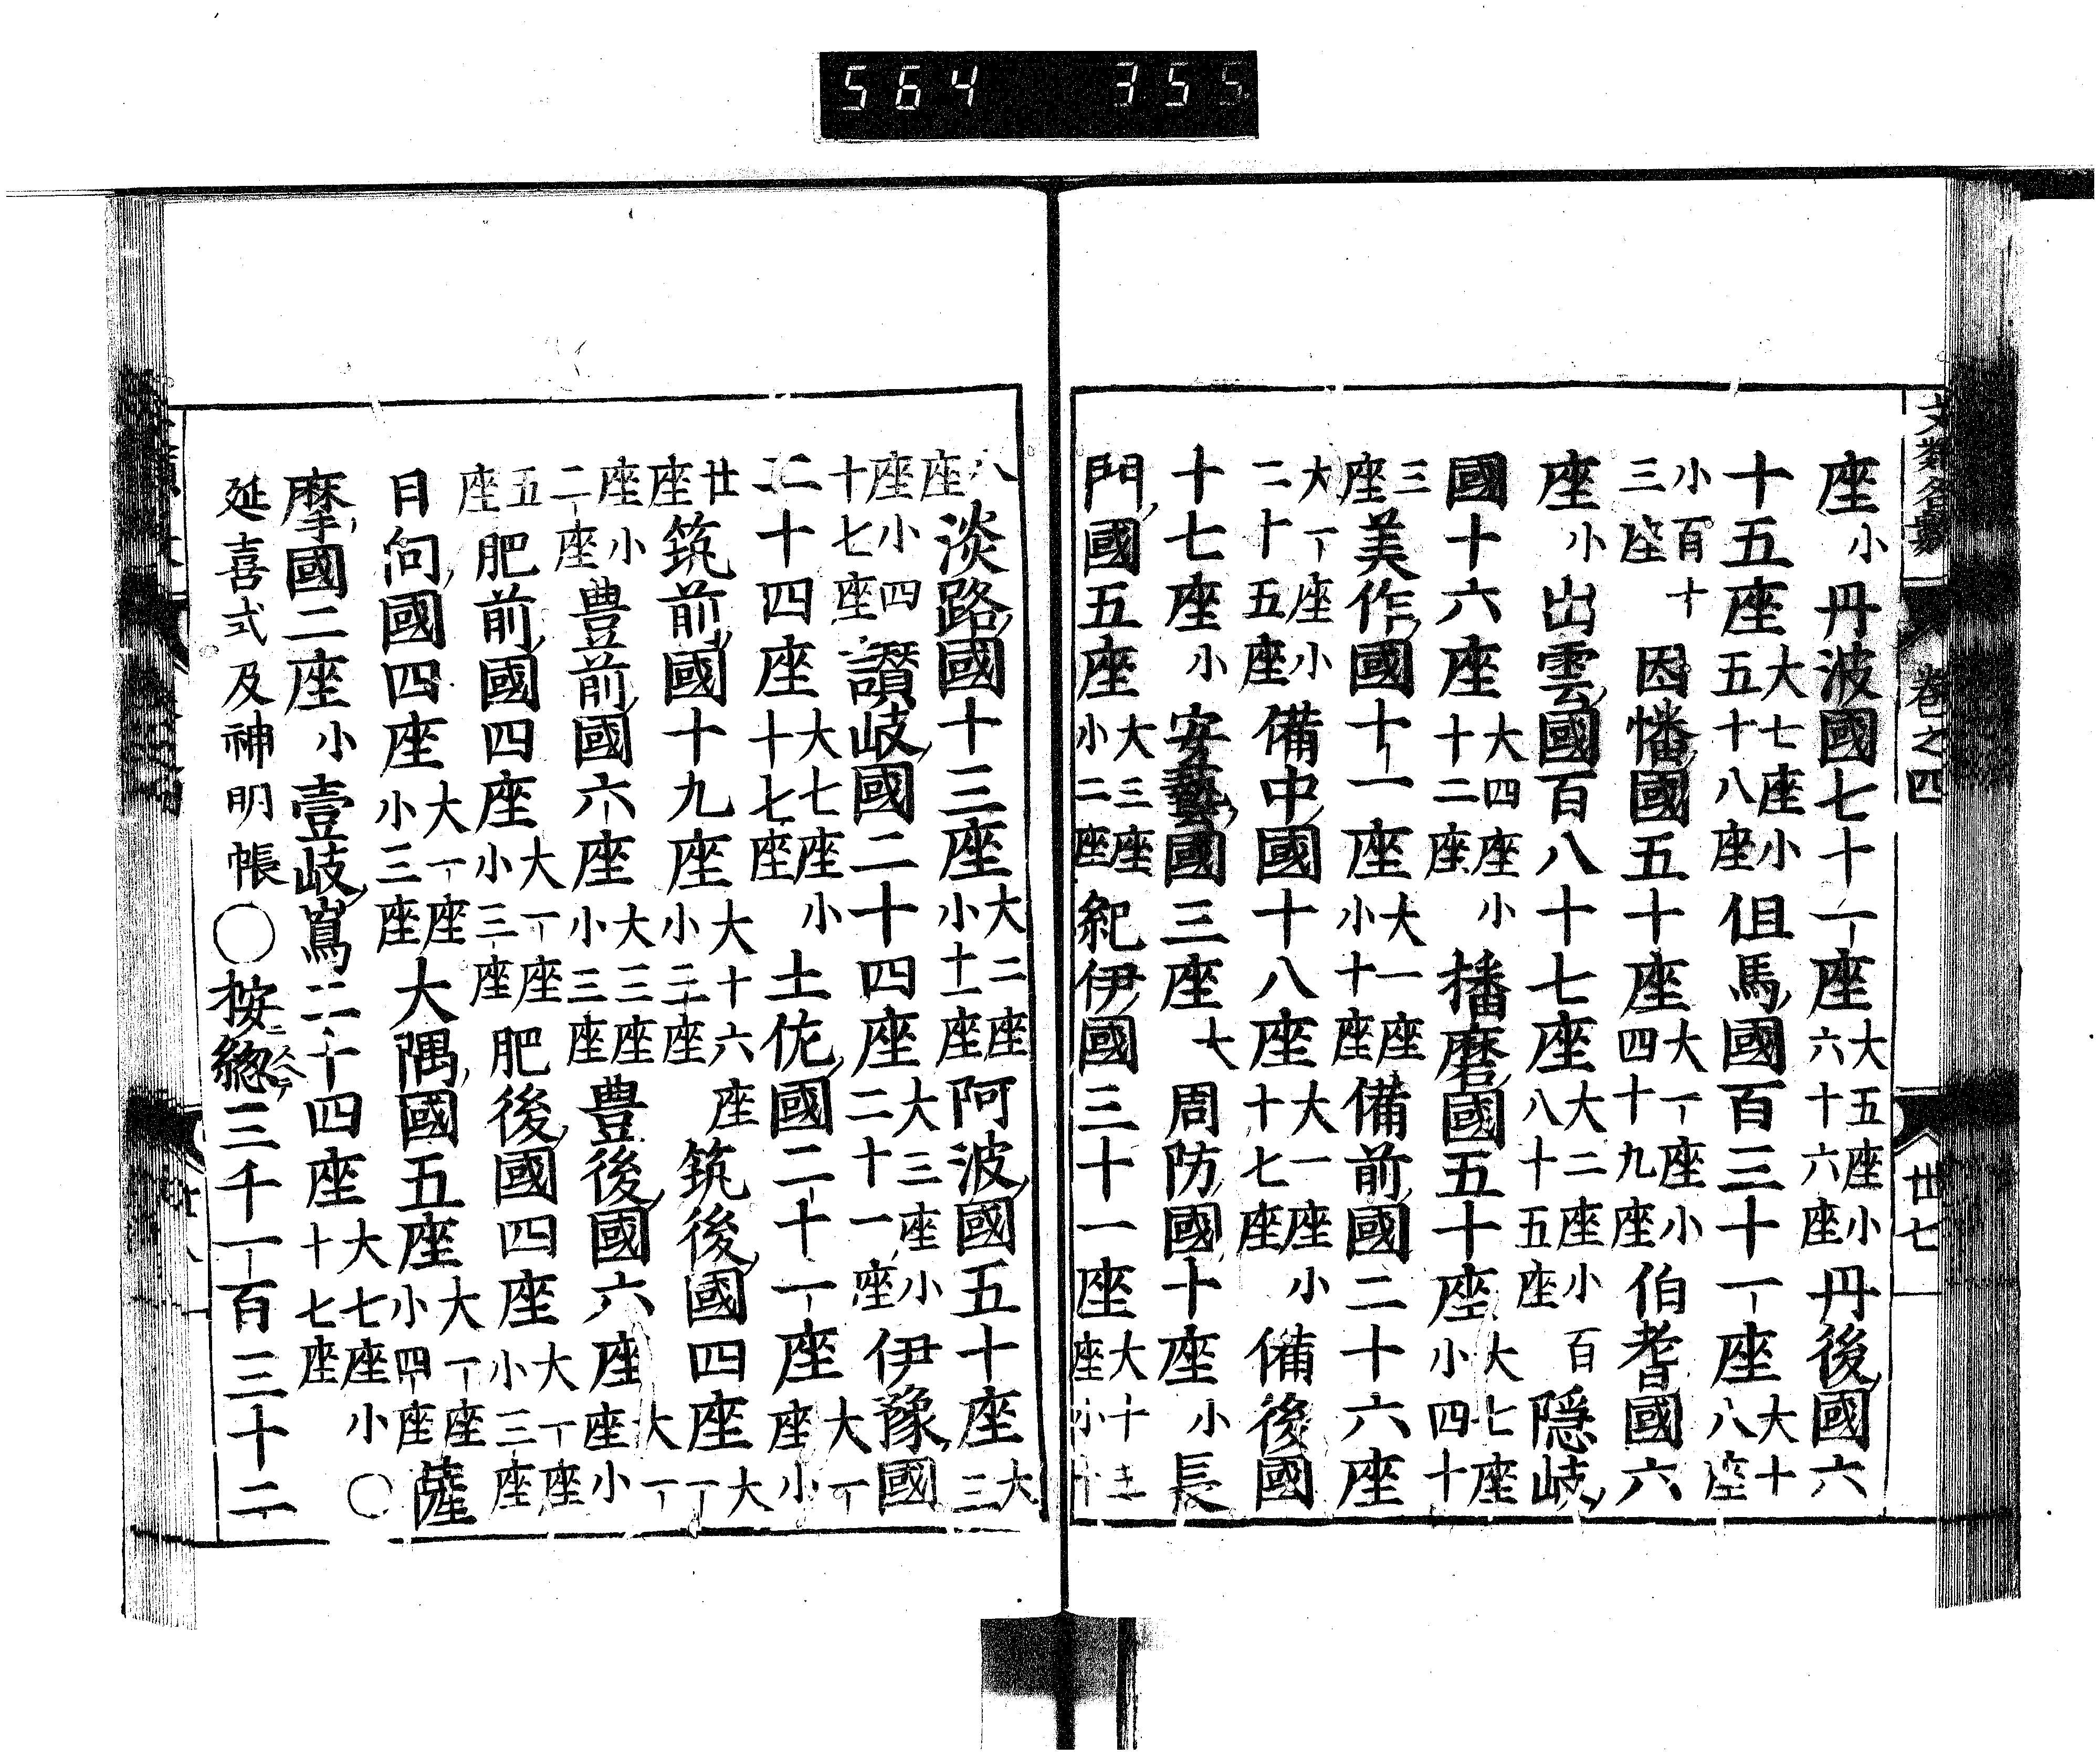 564 355
卷之四
廿七
座小丹波國七十一座大五座小六十六座丹後國六
十五座大七座小五十八座伹馬國百三十一座大十八座
小百十三座因幡國五十座大一座小四十九座伯耆國六
座小出雲國百八十七座大二座小百八十五座隠岐
國十六座大四座小十二座播磨國五十座大七座小四十
三座美作國十一座大一座小十座備前國二十六座
大一座小二十五座備中國十八座大一座小十七座備後國
十七座小安藝國三座大周防國十座小長
門國五座大三座小二座紀伊國三十一座大十三座小十
八座淡路國十三座大二座小十一座阿波國五十座大三
座小四十七座讃岐國二十四座大三座小二十一座伊豫國
二十四座大七座小十七座土佐國二十一座大一座小
廿座筑前國十九座大十六座小三座筑後國四座大一
座小二座豊前國六座大三座小三座豊後國六座大一座小
五座肥前國四座大一座小三座肥後國四座大一座小三座
日向國四座大一座小三座大隅國五座大一座小四座薩
摩國二座小壹岐嶌二十四座大七座小十七座○
延喜式及神明帳○按總三千一百三十二